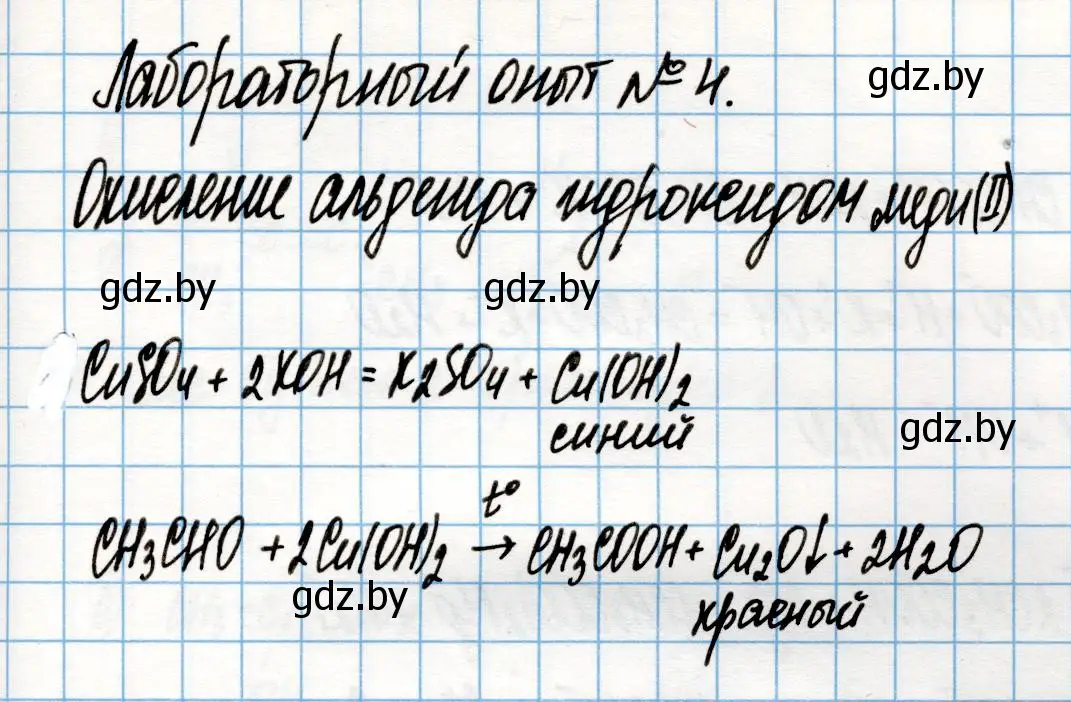 Лабораторный опыт № 4.
gdz.by
Окисление альдегида гидроксидом меди(II)
gdz.by gdz.by
CuSO4 + 2KOH = K2SO4 + Cu(OH)2
синий
gdz.by
t°
CH3CHO + 2Cu(OH)2 → CH3COOH + Cu2O↓ + 2H2O
gdz.by
красный